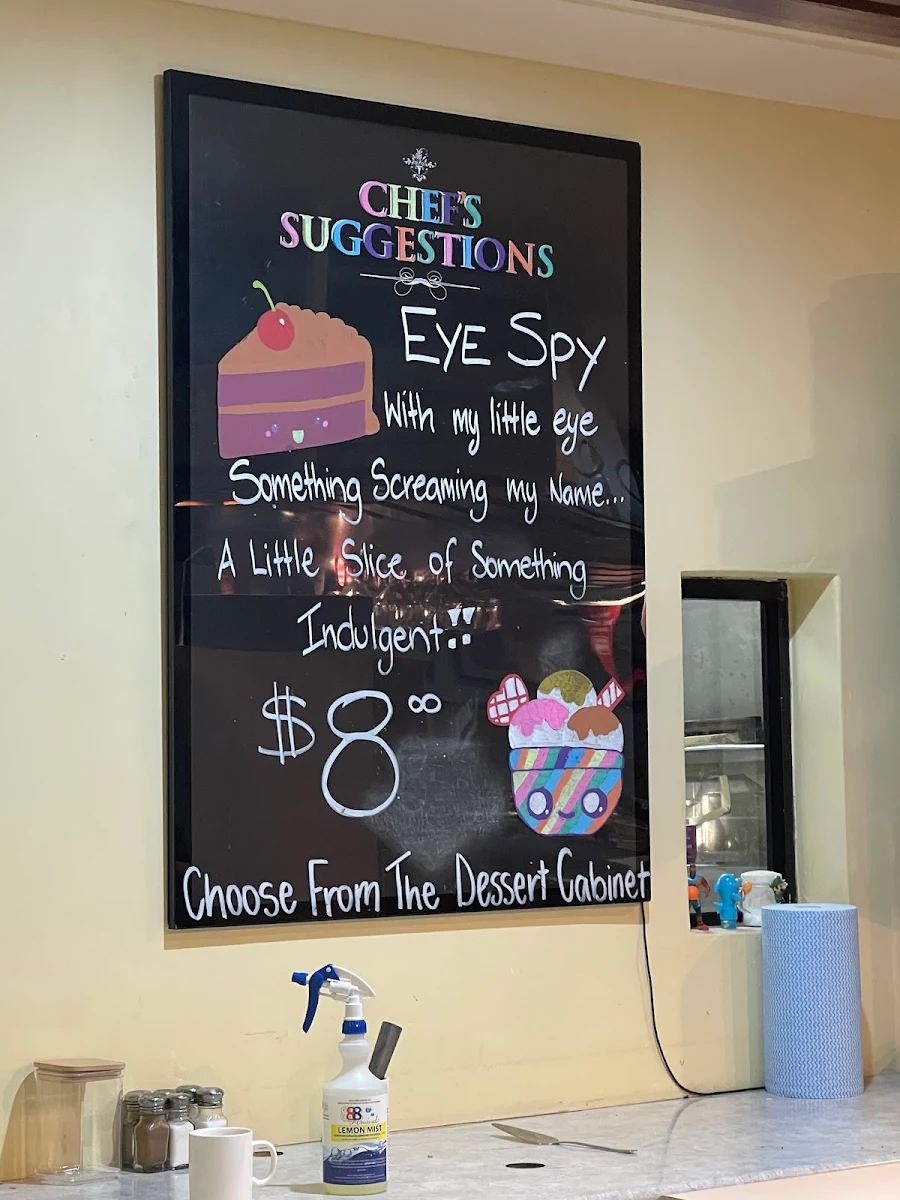 CHEF'S
SUGGESTIONS
EYE SPY
With my little eye
Something Screaming my Name...
A Little Slice of Something
Indulgent!!
$8 00
Choose From The Dessert Cabinet
LEMON MIST